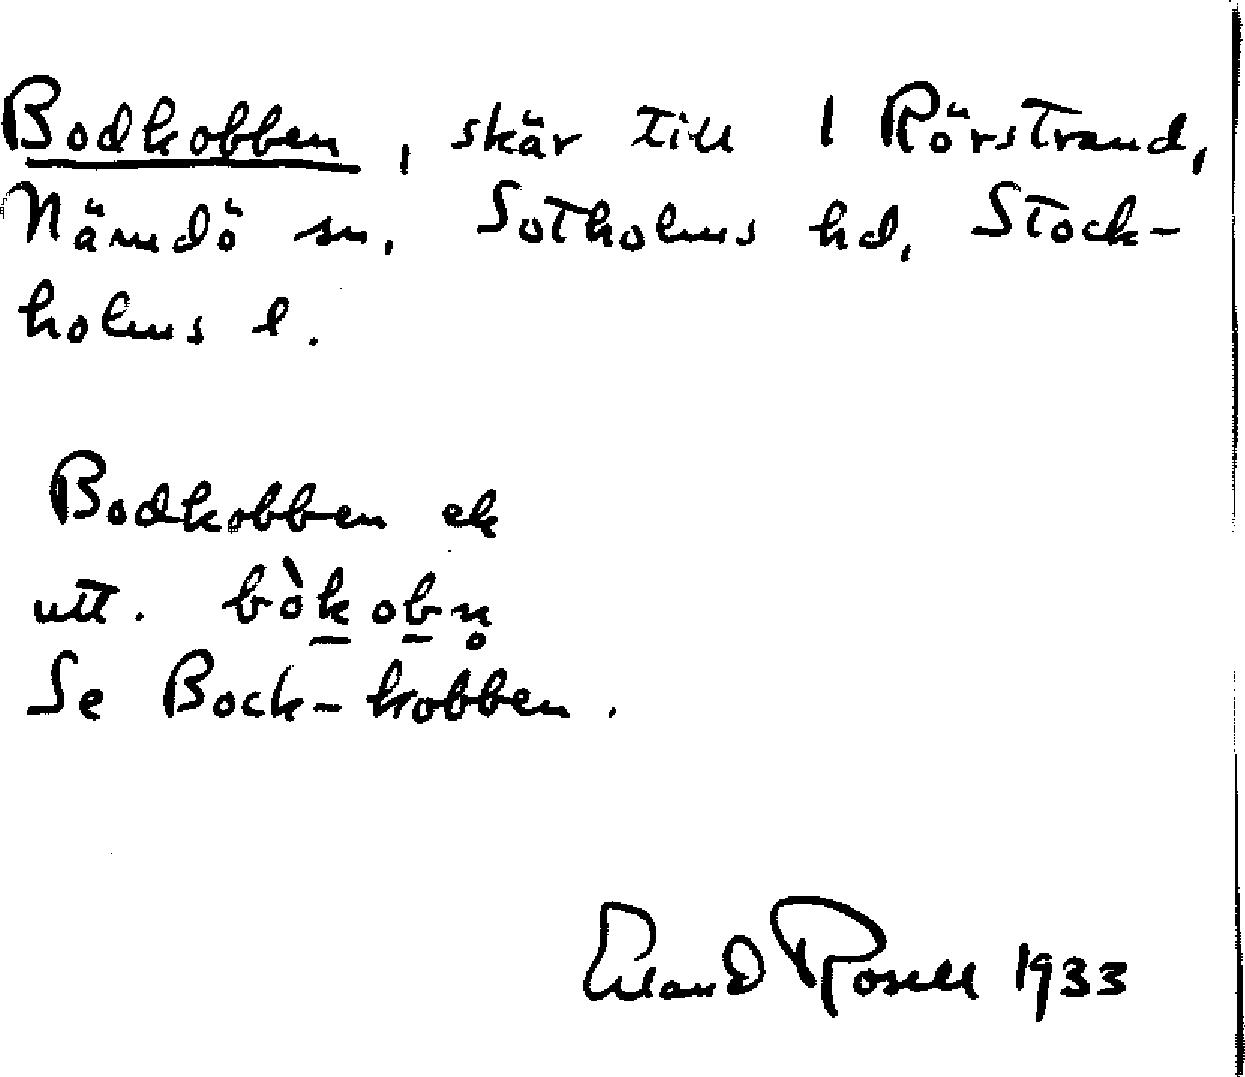 Bodkobben, skär till 1 Rörstrand,
Nämdö sn, Sotholms hd, Stock-
holms l.
Bodkobben ek
utt. bòk̲ob̲n̥
Se Bock-kobben.
Erland Rosell 1933